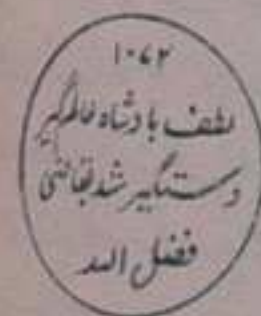 ۱۰۷۲
لطف بادشاه عالمگیر
دستگیر شد بقاضی
فضل الله